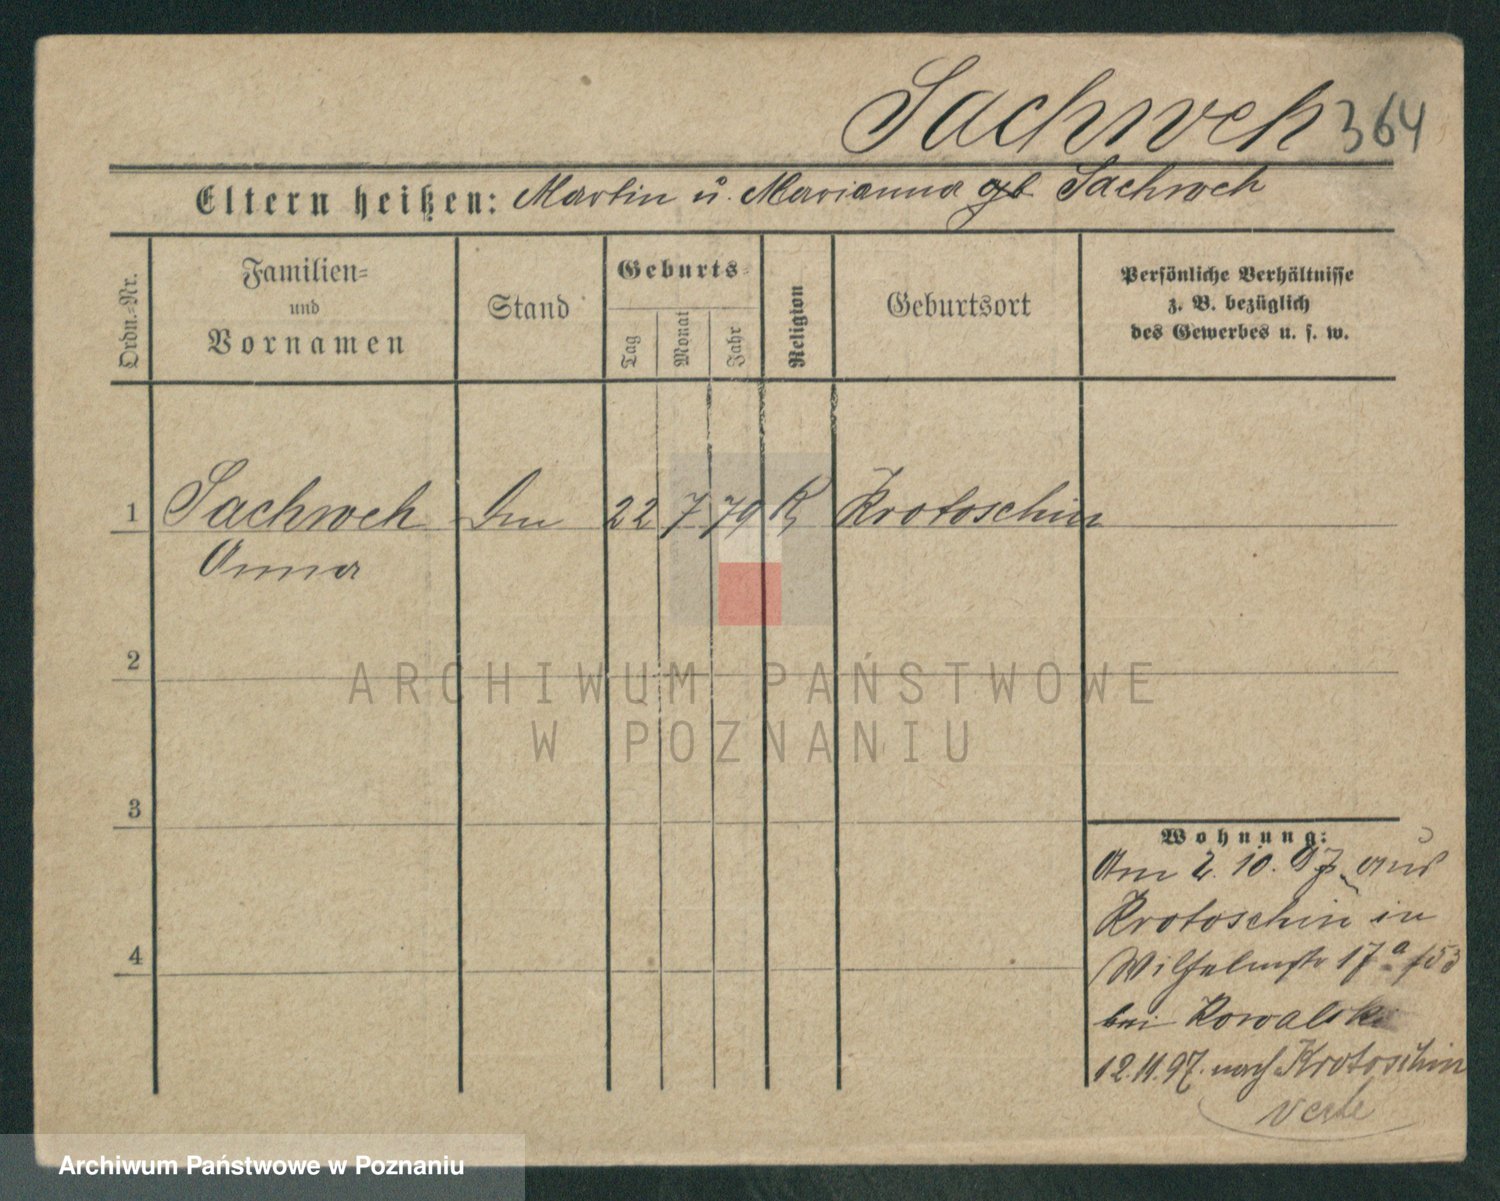 Sachweh 364
Eltern heißen: Martin u. Marianna gb Sachweh
Ordn.-Nr.
Familien-
und
Vornamen
Stand
Geburts-
Tag
Monat
Jahr
Religion
Geburtsort
Persönliche Verhältnisse
z. B. bezüglich
des Gewerbes u. s. w.
1 Sachweh 22 7 79 K Krotoschin
Anna
2
ARCHIWUM PAŃSTWOWE
W POZNANIU
3
4
Wohnung:
Am 2. 10. 97 aus
Krotoschin in
Wilhelmstr 17a
bei Kowalski
12.11.97. nach Krotoschin
verte
Archiwum Państwowe w Poznaniu